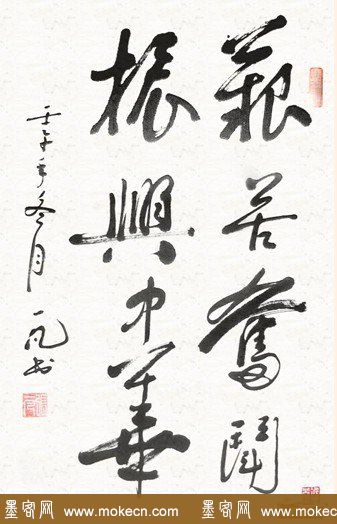 艱苦奮鬪
振興中華
壬午年冬月
一凡书
墨客网 www.mokecn.com 墨客网 www.mokecn.com